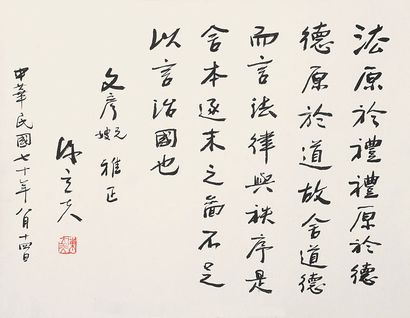 法原於禮禮原於德
德原於道故舍道德
而言法律與秩序是
舍本逐末之啚不足
以言治國也
文彥兄嫂 雅正
陳立夫
中華民國七十年八月十四日